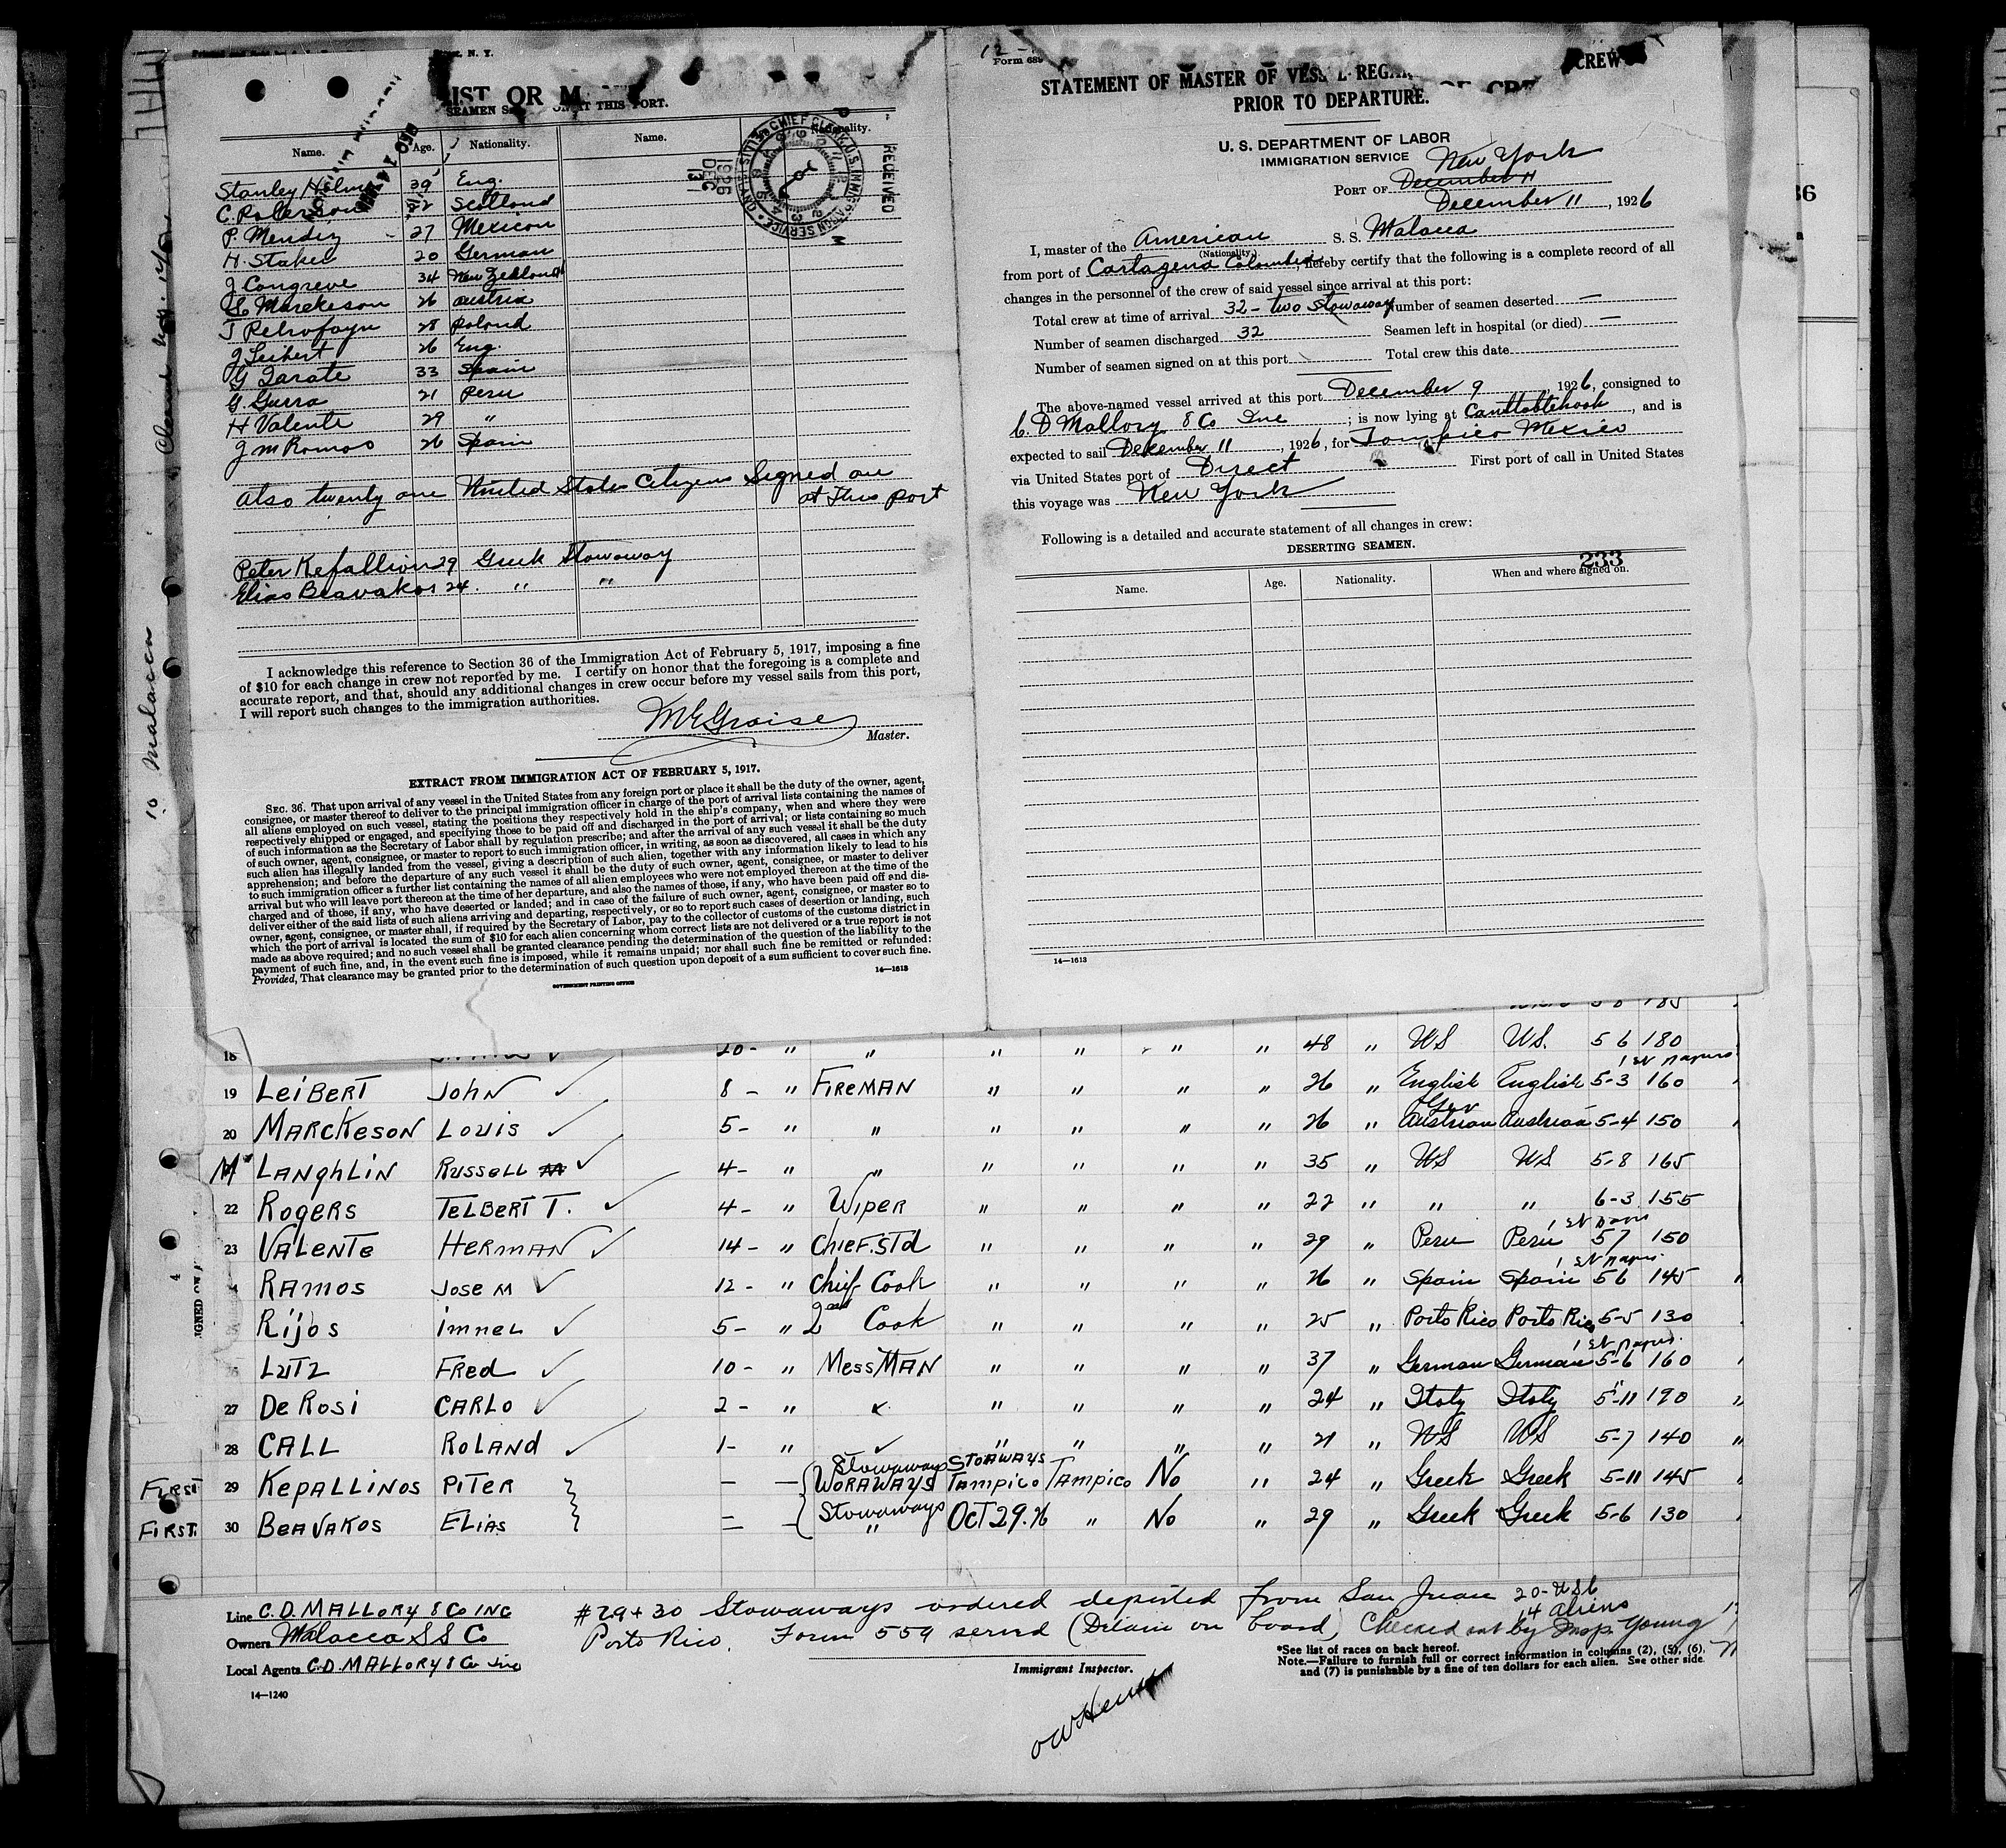 IST OR M
SEAMEN S ON AT THIS PORT.
Name. Age. Nationality. Name. Nationality.
RECEIVED
1926 DEC 13
CHIEF CLERK, U.S. IMMIGRATION SERVICE
Stanley 39 Eng.
C. Paterson 32 Scotland
P. Mendez - 27 Mexican
H. Staker 20 German
J Congreve 34 New Zealand
L. Marckeson 26 Austria
J Petrofayn 28 Poland
J Leibert 26 Eng.
G Zarate 33 Spain
G. Gurra 21 Peru
H Valente 29 "
J M Ramos 26 Spain
Also twenty one United States Citizens Signed on
at this port
Peter Kefallion 29 Greek Stowaway
Elias Beavakos 24. " "
I acknowledge this reference to Section 36 of the Immigration Act of February 5, 1917, imposing a fine
of $10 for each change in crew not reported by me. I certify on honor that the foregoing is a complete and
accurate report, and that, should any additional changes in crew occur before my vessel sails from this port,
I will report such changes to the immigration authorities.
Master.
EXTRACT FROM IMMIGRATION ACT OF FEBRUARY 5, 1917.
SEC. 36. That upon arrival of any vessel in the United States from any foreign port or place it shall be the duty of the owner, agent,
consignee, or master thereof to deliver to the principal immigration officer in charge of the port of arrival lists containing the names of
all aliens employed on such vessel, stating the positions they respectively hold in the ship's company, when and where they were
respectively shipped or engaged, and specifying those to be paid off and discharged in the port of arrival; or lists containing so much
of such information as the Secretary of Labor shall by regulation prescribe; and after the arrival of any such vessel it shall be the duty
of such owner, agent, consignee, or master to report to such immigration officer, in writing, as soon as discovered, all cases in which any
such alien has illegally landed from the vessel, giving a description of such alien, together with any information likely to lead to his
apprehension; and before the departure of any such vessel it shall be the duty of such owner, agent, consignee, or master to deliver
to such immigration officer a further list containing the names of all alien employees who were not employed thereon at the time of the
arrival but who will leave port thereon at the time of her departure, and also the names of those, if any, who have been paid off and dis-
charged and of those, if any, who have deserted or landed; and in case of the failure of such owner, agent, consignee, or master so to
deliver either of the said lists of such aliens arriving and departing, respectively, or so to report such cases of desertion or landing, such
owner, agent, consignee, or master shall, if required by the Secretary of Labor, pay to the collector of customs of the customs district in
which the port of arrival is located the sum of $10 for each alien concerning whom correct lists are not delivered or a true report is not
made as above required; and no such vessel shall be granted clearance pending the determination of the question of the liability to the
payment of such fine, and, in the event such fine is imposed, while it remains unpaid; nor shall such fine be remitted or refunded:
Provided, That clearance may be granted prior to the determination of such question upon deposit of a sum sufficient to cover such fine.
14—1613
GOVERNMENT PRINTING OFFICE
Form 689
STATEMENT OF MASTER OF VESSEL REGAR CREW
PRIOR TO DEPARTURE.
U. S. DEPARTMENT OF LABOR
IMMIGRATION SERVICE
New York
PORT OF December 11
December 11, 1926
I, master of the American S. S. Malacca
(Nationality)
from port of Cartagena Colombia, hereby certify that the following is a complete record of all
changes in the personnel of the crew of said vessel since arrival at this port:
Total crew at time of arrival 32 - two Stowaway Number of seamen deserted —
Number of seamen discharged 32 Seamen left in hospital (or died) —
Number of seamen signed on at this port Total crew this date
The above-named vessel arrived at this port December 9, 1926, consigned to
C. D Mallory & Co Inc; is now lying at , and is
expected to sail December 11, 1926, for Tampico Mexico
via United States port of Direct First port of call in United States
this voyage was New York
Following is a detailed and accurate statement of all changes in crew:
DESERTING SEAMEN.
233
Name. Age. Nationality. When and where signed on.
14—1613
Malacca
18 20- " " " " " " 48 " US US. 5 6 180
19 LEIBERT JOHN ✓ 8 - " FIREMAN " " " " 26 " English English 5-3 1st papers 160
20 MARCKESON LOUIS ✓ 5- " " " " " " 26 " Austrian Austrian 5-4 150
Mc LANGHLIN RUSSELL M ✓ 4- " " " " " " 35 " US US 5-8 165
22 ROGERS TELBERT T. ✓ 4- " WIPER " " " " 22 " " " 6-3 155
23 VALENTE HERMAN ✓ 14- " CHIEF.STd " " " " 29 " Peru Peru 5 7 150
RAMOS JOSE M ✓ 12- " Chief Cook " " " " 26 " Spain Spain 5 6 145 "
RIJOS IMNEL ✓ 5- " 2nd Cook " " " " 25 " Porto Rico Porto Rico 5-5 130
LUTZ FRED ✓ 10- " MESSMAN " " " " 37 " German German 5-6 1st papers 160
27 DE ROSI CARLO ✓ 2- " " " " " " 24 " Italy Italy 5-11 190 "
28 CALL ROLAND ✓ 1- " " " " " " 21 " US US 5-7 140 "
FIRST 29 KEPALLINOS PITER — — Stowaways WORAWAYS STOAWAYS TAMPICO TAMPICO No " 24 " Greek Greek 5-11 145
FIRST. 30 BEAVAKOS ELIAS — — Stowaways " OCT 29.26 " No " 29 " Greek Greek 5-6 130
Line C.D. MALLORY & Co INC
Owners Malacca S S Co
Local Agents C.D. MALLORY & Co Inc
14—1240
#29+30 Stowaways ordered deported from San Juan
Porto Rico. Form 559 served (Detain on board)
20-USC
14 Aliens
Checked out by Insp. Young
Immigrant Inspector.
*See list of races on back hereof.
Note.—Failure to furnish full or correct information in columns (2), (5), (6),
and (7) is punishable by a fine of ten dollars for each alien. See other side.